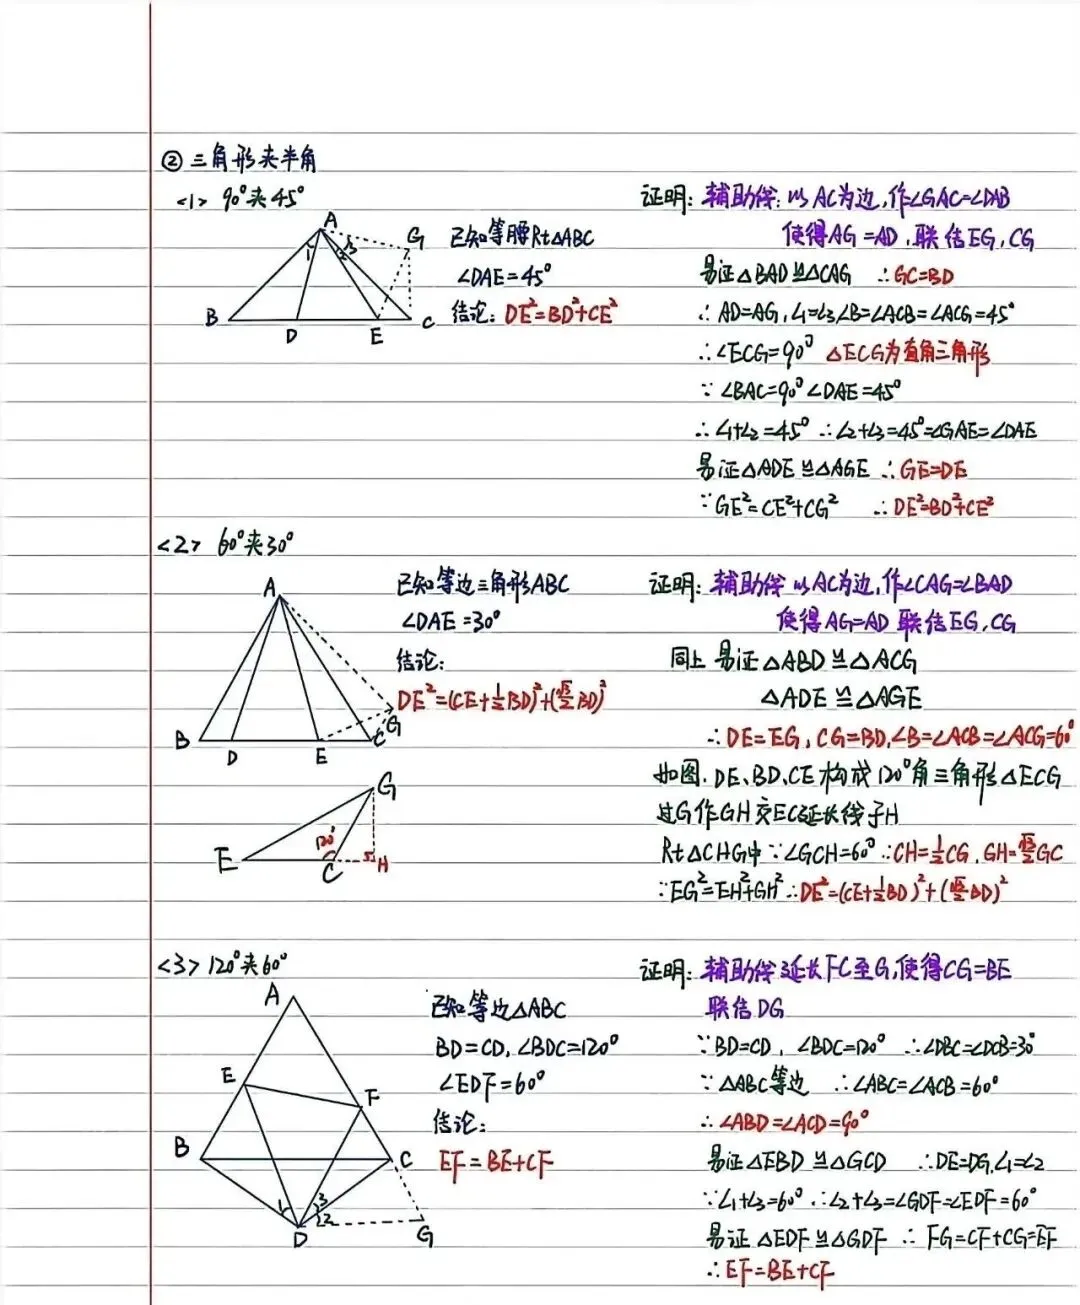 ② 三角形夹半角
<1> 90°夹45°
A
G
1 2 3
B D E C
已知等腰Rt△ABC
∠DAE=45°
结论: DE²=BD²+CE²
证明: 辅助线: 以AC为边,作∠GAC=∠DAB
使得AG=AD,联结EG,CG
易证△BAD≌△CAG ∴GC=BD
∴AD=AG,∠1=∠3,∠B=∠ACB=∠ACG=45°
∴∠ECG=90° △ECG为直角三角形
∵∠BAC=90°∠DAE=45°
∴∠1+∠2=45° ∴∠2+∠3=45°=∠GAE=∠DAE
易证△ADE≌△AGE ∴GE=DE
∵GE²=CE²+CG² ∴DE²=BD²+CE²
<2> 60°夹30°
A
B D E C G
已知等边三角形ABC
∠DAE=30°
结论:
DE²=(CE+½BD)²+(√3/2 BD)²
G
120°
E C H
证明: 辅助线 以AC为边,作∠CAG=∠BAD
使得AG=AD 联结EG,CG
同上 易证△ABD≌△ACG
△ADE≌△AGE
∴DE=EG,CG=BD,∠B=∠ACB=∠ACG=60°
如图.DE、BD、CE构成120°角三角形△ECG
过G作GH交EC延长线于H
Rt△CHG中∵∠GCH=60°∴CH=½CG,GH=√3/2 GC
∵EG²=EH²+GH²∴DE²=(CE+½BD)²+(√3/2 BD)²
<3> 120°夹60°
A
E F
B C
1 3 2
D G
已知等边△ABC
BD=CD,∠BDC=120°
∠EDF=60°
结论:
EF=BE+CF
证明: 辅助线 延长FC至G,使得CG=BE
联结DG
∵BD=CD, ∠BDC=120° ∴∠DBC=∠DCB=30°
∵△ABC等边 ∴∠ABC=∠ACB=60°
∴∠ABD=∠ACD=90°
易证△EBD≌△GCD ∴DE=DG,∠1=∠2
∵∠1+∠3=60°∴∠2+∠3=∠GDF=∠EDF=60°
易证△EDF≌△GDF ∴FG=CF+CG=EF
∴EF=BE+CF